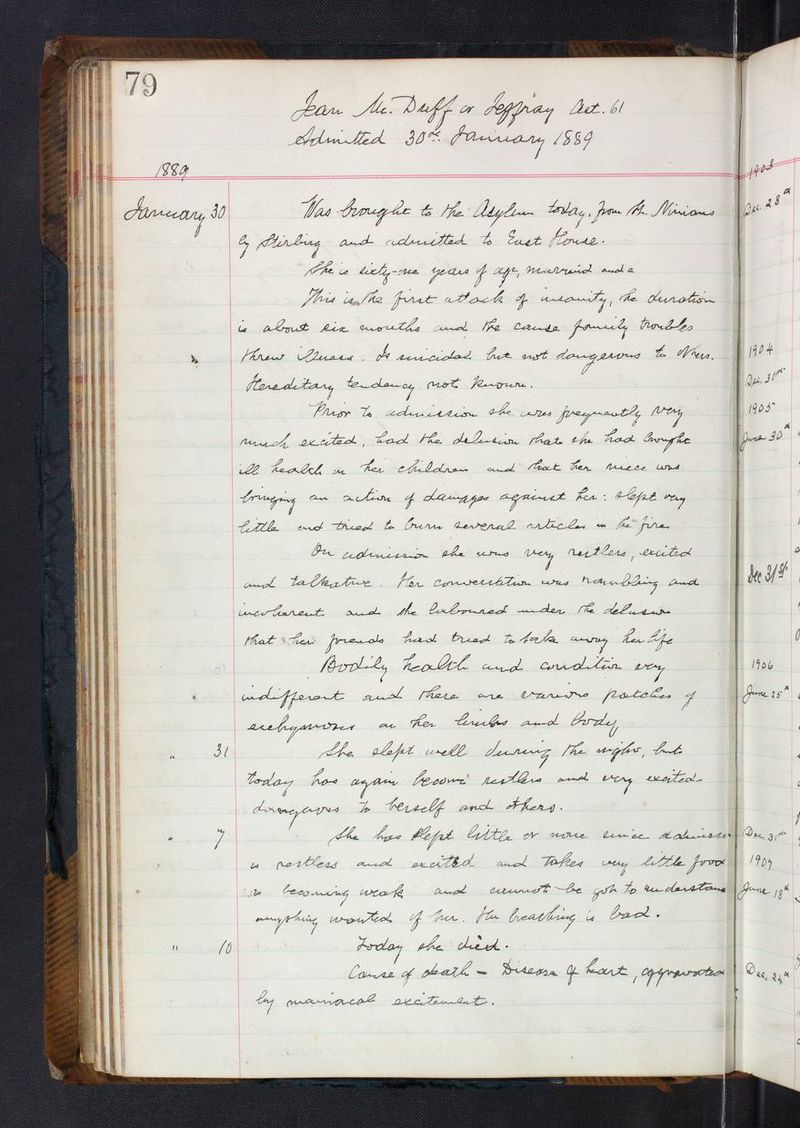 79
Jean Mc. Duff or Jeffray Aet. 61
Admitted 30th. January 1889
1889
January 30 Was brought to the Asylum today, from St. Ninians
by Stirling and admitted to East House.
She is sixty-one years of age, married and a
This is the first attack of insanity, the duration
is about six months and the cause family troubles
threw illness. Is suicidal but not dangerous to others.
Hereditary tendency not known.
Prior to admission she was frequently very
much excited, had the delusion that she had brought
ill health on her children and that her niece was
bringing an action of damages against her: slept very
little and tried to burn several articles in the fire
On admission she was very restless, excited
and talkative. Her conversation was rambling and
incoherent and she laboured under the delusion
that her friends had tried to take away her life
Bodily health and condition very
indifferent and there are various patches of
ecchymoses on her limbs and body
" 31 She slept well during the night, but
today has again become restless and very excited
dangerous to herself and others.
" 7 She has slept little or none since admission
is restless and excited and takes very little food
is becoming weak and cannot be got to understand
anything wanted of her. Her breathing is bad.
" 10 Today she died.
Cause of death - Disease of heart, aggravated
by maniacal excitement.
1903
Dec. 28th
1904
Dec. 31st
1905
June 30th
Dec 31st
1906
June 25th
Dec. 31st
1907
June 18th
Dec. 24th